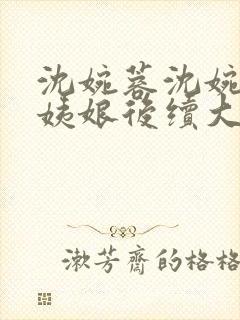 沈婉蓉沈婉
姨娘後續大
漱芳齋的格格